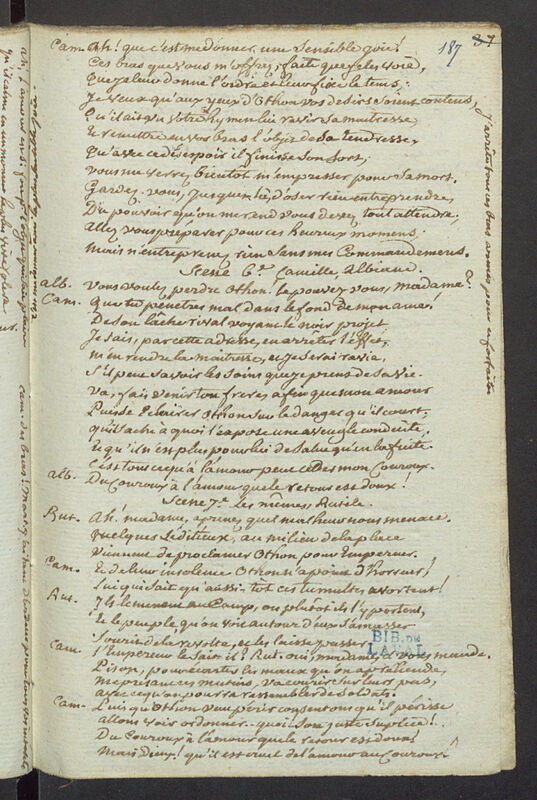 187
37
Cam. Ah! que c'est me donner une sensible joie!
Ces bras que vous m'offrez, faite que je les voie,
Que je leur donne l'ordre et leur fixe le tems;
Je veux qu'aux yeux d'Othon vos desirs soient contens,
Qu'il ait vû votre hymen lui ravir sa maitresse,
Et remettre en vos bras l'objet de sa tendresse,
Qu'avec ce désespoir il finisse son sort,
vous me verrez bientôt m'empresser pour sa mort.
Gardez-vous, jusques là, d'oser rien entreprendre,
Du pouvoir qu'on me rend vous devez tout attendre,
Allez vous préparer pour ces heureux momens;
Mais n'entreprenez rien sans mes Commandemens.
Scene 6.e Camille, Albiane.
alb. vous voulez perdre Othon! le pouvez vous, madame?
Cam. Que tu pénètres mal dans le fond de mon ame!
De son lâche rival voyant le noir projet,
Je sais, par cette adresse, en arrêter l'effet,
m'en rendre la maitresse, et je serai ravie,
S'il peut savoir les soins que je prens de sa vie.
Va, fais venir ton frere, afin que mon amour
Puisse éclairer Othon sur le danger qu'il court,
qu'il sache à quoi l'expose une aveugle conduite,
Et qu'il n'en plus pour lui de salut qu'en la fuite.
C'est tout ce qu'à l'amour peut céder mon Couroux.
alb. Du Couroux à l'amour que le retour est doux!
Scene 7.e les mêmes, Rutile.
Rut. Ah! madame, apprenez quel malheur nous menace.
Quelques séditieux, au milieu de la place
Viennent de proclamer Othon pour Empereur.
Cam. Et de leur insolence Othon n'a point d'horreur,
Lui qui sait qu'aussi-tôt ces tumultes avortent!
Rut. Ils le menent au Camp, ou plutôt ils l'y portent,
Et le peuple qu'on voit autour d'eux s'amasser
Sourit de la révolte, et les laisse passer.
Cam. L'Empereur le sait-il? Rut. oui, madame, il vous mande,
Pison, pour éviter les maux qu'on appréhende,
Meprisant ces mutins, va courir sur leurs pas,
avec ce qu'on pourra rassembler de soldats.
Cam. Puisqu'Othon veut périr consentons qu'il périsse
allons voir ordonner... quoi! son juste suplice!..
Du Couroux à l'amour que le retour est doux!
Mais Dieux! qu'il est cruel de l'amour au Couroux!
J'arrêterai ces bras armés pour ce forfait
BIB. DE
LAVAL